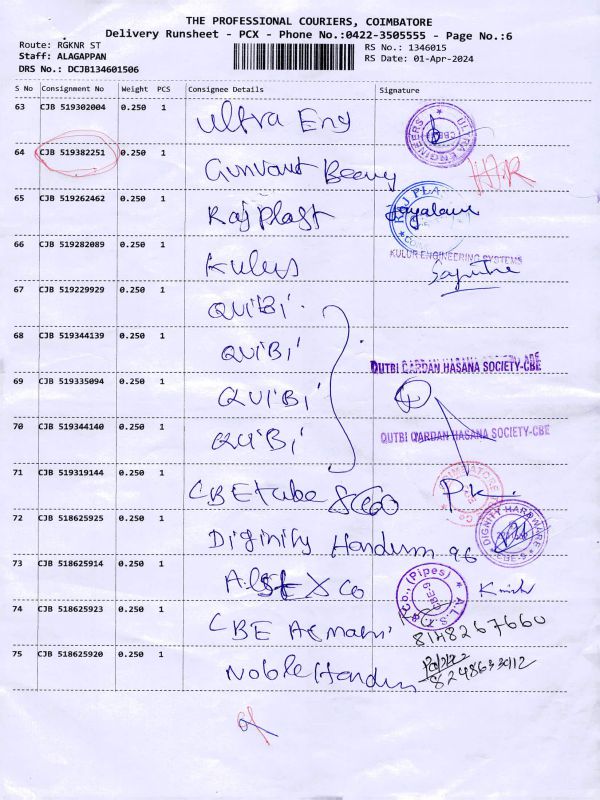 THE PROFESSIONAL COURIERS, COIMBATORE
Delivery Runsheet - PCX - Phone No.:0422-3505555 - Page No.:6
Route: RGKNR ST
RS No.: 1346015
Staff: ALAGAPPAN
RS Date: 01-Apr-2024
DRS No.: DCJB134601506
S No Consignment No Weight PCS Consignee Details Signature
63 CJB 519302004 0.250 1 Ultra Eng
ULTRA ENGINEERS
64 CJB 519382251 0.250 1 Gunvant
65 CJB 519262462 0.250 1 Raj Plast
RAJ PLA
66 CJB 519282089 0.250 1
KULUR ENGINEERING SYSTEMS
67 CJB 519229929 0.250 1 QUIBI
68 CJB 519344139 0.250 1 QUIBI
69 CJB 519335094 0.250 1 QUIBI
QUTBI QARDAN HASANA SOCIETY-CBE
70 CJB 519344140 0.250 1 QUIBI
QUTBI QARDAN HASANA SOCIETY-CBE
71 CJB 519319144 0.250 1 CBE tube P.K.
72 CJB 518625925 0.250 1 Diginity
DIGNITY HARDWARE
73 CJB 518625914 0.250 1 & Co
A.L.S.T. & Co. (Pipes) CBE-9
74 CJB 518625923 0.250 1 CBE
8148267660
75 CJB 518625920 0.250 1 Noble